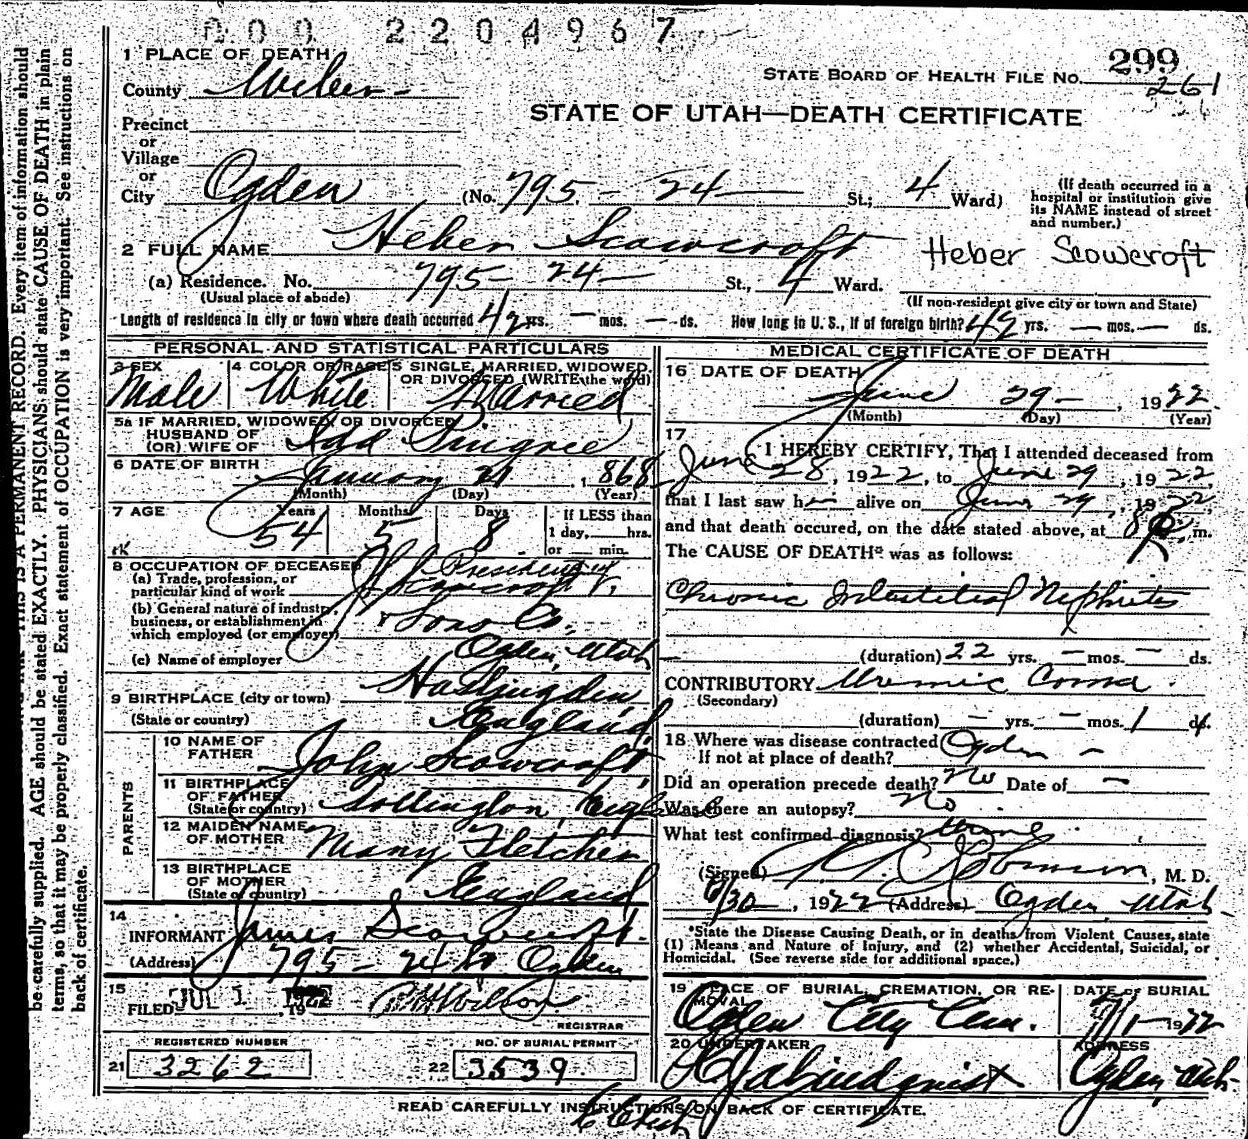 000 2204967
299
1 PLACE OF DEATH
County Weber
STATE BOARD OF HEALTH FILE NO. 261
STATE OF UTAH—DEATH CERTIFICATE
Precinct
or
Village
or
City Ogden (No. 795 - 24 St.; 4 Ward)
(If death occurred in a hospital or institution give its NAME instead of street and number.)
2 FULL NAME Heber Scowcroft
Heber Scowcroft
(a) Residence. No. 795 24 St., 4 Ward.
(Usual place of abode)
(If non-resident give city or town and State)
Length of residence in city or town where death occurred 42 yrs. — mos. — ds. How long in U. S., if of foreign birth? 42 yrs. — mos. — ds.
PERSONAL AND STATISTICAL PARTICULARS
3 SEX
Male
4 COLOR OR RACE
White
5 SINGLE, MARRIED, WIDOWED, OR DIVORCED (WRITE the word)
Married
5a IF MARRIED, WIDOWED, OR DIVORCED
HUSBAND OF
(OR) WIFE OF Pingree
6 DATE OF BIRTH January 21, 1868
(Month) (Day) (Year)
7 AGE Years Months Days
54 5 8
If LESS than 1 day, hrs. or min.
8 OCCUPATION OF DECEASED
(a) Trade, profession, or particular kind of work President of J. Scowcroft
(b) General nature of industry, business, or establishment in which employed (or employer) & Sons Co.,
(c) Name of employer Ogden, Utah
9 BIRTHPLACE (city or town) Haslingden,
(State or country) England
PARENTS
10 NAME OF FATHER John Scowcroft,
11 BIRTHPLACE OF FATHER (State or country) Tottington, England
12 MAIDEN NAME OF MOTHER Mary Fletcher
13 BIRTHPLACE OF MOTHER (State or country) England
14
INFORMANT James Scowcroft.
(Address) 795 - 24 Ogden
15
FILED JUL 1 1922 Wilson
REGISTRAR
REGISTERED NUMBER
21 3262
NO. OF BURIAL PERMIT
22 3539.
MEDICAL CERTIFICATE OF DEATH
16 DATE OF DEATH
June 29 - , 1922.
(Month) (Day) (Year)
17
I HEREBY CERTIFY, That I attended deceased from
June 28, 1922, to June 29, 1922,
that I last saw h alive on June 29, 1922,
and that death occured, on the date stated above, at 8 m.
The CAUSE OF DEATH* was as follows:
Chronic Interstitial Nephritis
(duration) 22 yrs. — mos. — ds.
CONTRIBUTORY Uremic Coma.
(Secondary)
(duration) — yrs. — mos. 1 ds.
18 Where was disease contracted Ogden -
If not at place of death?
Did an operation precede death? No Date of —
Was there an autopsy? No.
What test confirmed diagnosis? Urine
(Signed) Robinson, M. D.
6/30, 1922 (Address) Ogden, Utah
*State the Disease Causing Death, or in deaths from Violent Causes, state
(1) Means and Nature of Injury, and (2) whether Accidental, Suicidal, or
Homicidal. (See reverse side for additional space.)
19 PLACE OF BURIAL, CREMATION, OR REMOVAL
Ogden City Cem.
DATE of BURIAL
7/1- 1922
20 UNDERTAKER
Lindquist
ADDRESS
Ogden, Utah
READ CAREFULLY INSTRUCTIONS ON BACK OF CERTIFICATE.
THIS IS A PERMANENT RECORD. Every item of information should
be carefully supplied. AGE should be stated EXACTLY. PHYSICIANS should state CAUSE OF DEATH in plain
terms, so that it may be properly classified. Exact statement of OCCUPATION is very important. See instructions on
back of certificate.